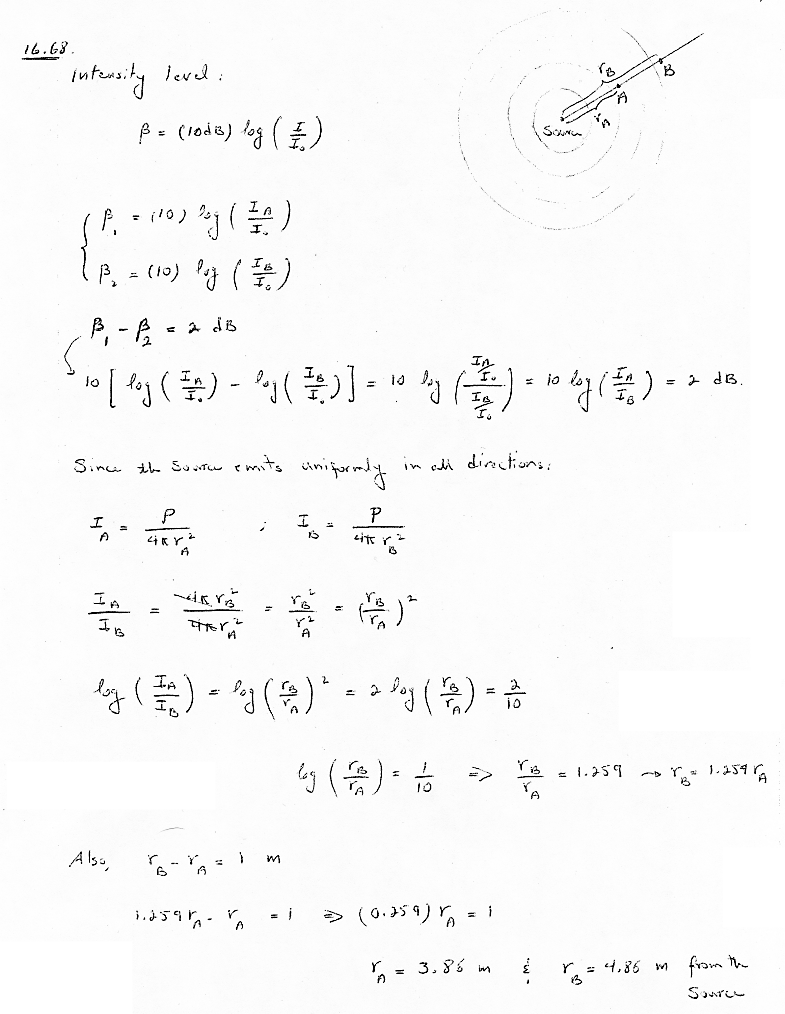 16.68.
Intensity level:
r_B
B
A
r_A
Source
β = (10dB) log (I/I₀)
β₁ = (10) log (I_A/I₀)
β₂ = (10) log (I_B/I₀)
β₁ - β₂ = 2 dB
10 [log (I_A/I₀) - log (I_B/I₀)] = 10 log ((I_A/I₀)/(I_B/I₀)) = 10 log (I_A/I_B) = 2 dB.
Since the Source emits uniformly in all directions:
I_A = P/4πr_A² ; I_B = P/4πr_B²
I_A/I_B = 4πr_B²/4πr_A² = r_B²/r_A² = (r_B/r_A)²
log (I_A/I_B) = log (r_B/r_A)² = 2 log (r_B/r_A) = 2/10
log (r_B/r_A) = 1/10 => r_B/r_A = 1.259 → r_B = 1.259 r_A
Also, r_B - r_A = 1 m
1.259 r_A - r_A = 1 => (0.259) r_A = 1
r_A = 3.86 m & r_B = 4.86 m from the
Source